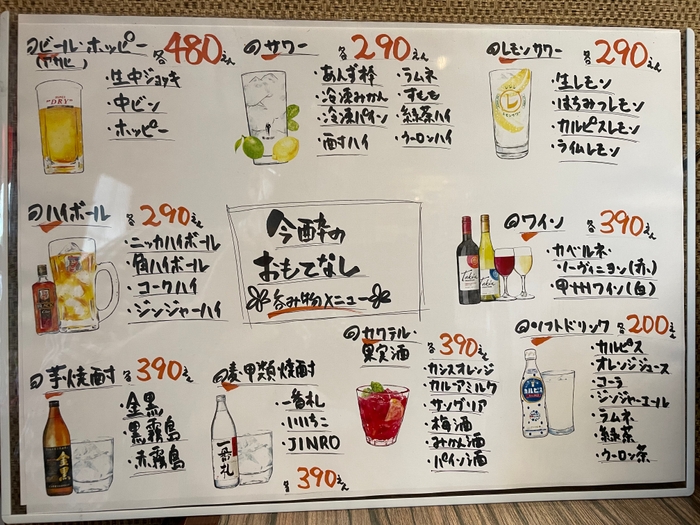 ビール・ホッピー 各480えん
・生中ジョッキ
・中ビン
・ホッピー
サワー 各290えん
・あんず棒
・冷凍みかん
・冷凍パイン
・酎ハイ
・ラムネ
・すもも
・緑茶ハイ
・ウーロンハイ
レモンサワー 各290えん
・生レモン
・はちみつレモン
・カルピスレモン
・ライムレモン
ハイボール 各290えん
・ニッカハイボール
・角ハイボール
・コークハイ
・ジンジャーハイ
今酔の
おもてなし
呑み物メニュー
ワイン 各390えん
・カベルネ・
ソーヴィニヨン(赤)
・甲州ワイン(白)
芋焼酎 各390えん
・金黒
・黒霧島
・赤霧島
金黒
麦・甲類焼酎
・一番札
・いいちこ
・JINRO
各390えん
一番札
カクテル・
果実酒 各390えん
・カシスオレンジ
・カルーアミルク
・サングリア
・梅酒
・みかん酒
・パイン酒
ソフトドリンク 各200えん
・カルピス
・オレンジジュース
・コーラ
・ジンジャーエール
・ラムネ
・緑茶
・ウーロン茶
カルピス
"DRY"